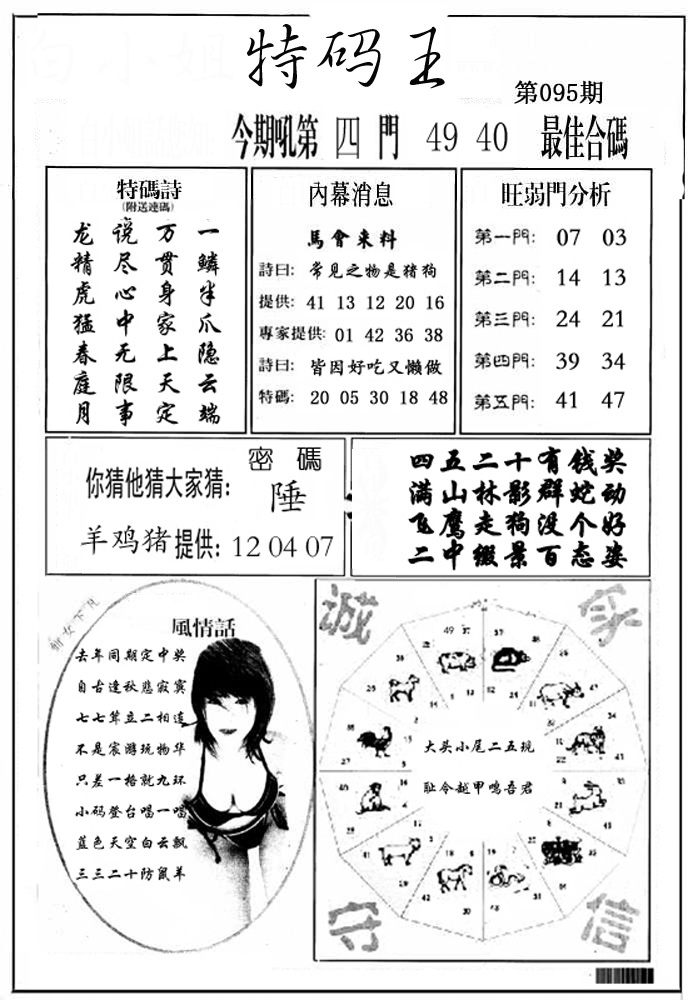 特码王
第095期
今期吼第 四 門 49 40 最佳合碼
特碼詩
(附送連碼)
龙 说 万 一
精 尽 贯 鳞
虎 心 身 半
猛 中 家 爪
春 无 上 隐
庭 限 天 云
月 事 定 端
內幕消息
馬會来料
詩曰: 常见之物是猪狗
提供: 41 13 12 20 16
專家提供: 01 42 36 38
詩曰: 皆因好吃又懒做
特碼: 20 05 30 18 48
旺弱門分析
第一門: 07 03
第二門: 14 13
第三門: 24 21
第四門: 39 34
第五門: 41 47
密 碼
你猜他猜大家猜: 陲
羊鸡猪提供: 12 04 07
四五二十有钱奖
满山林影群蛇动
飞鹰走狗没个好
二中缀景百态姿
女下凡
風情話
去年同期定中奖
自古逢秋悲寂寞
七七耸立二相连
不是宸游玩物华
只差一格就九环
小码登台唱一唱
蓝色天空白云飘
三三二十防鼠羊
诚 家
大头小尾二五现
耻令越甲鸣吾君
守 信